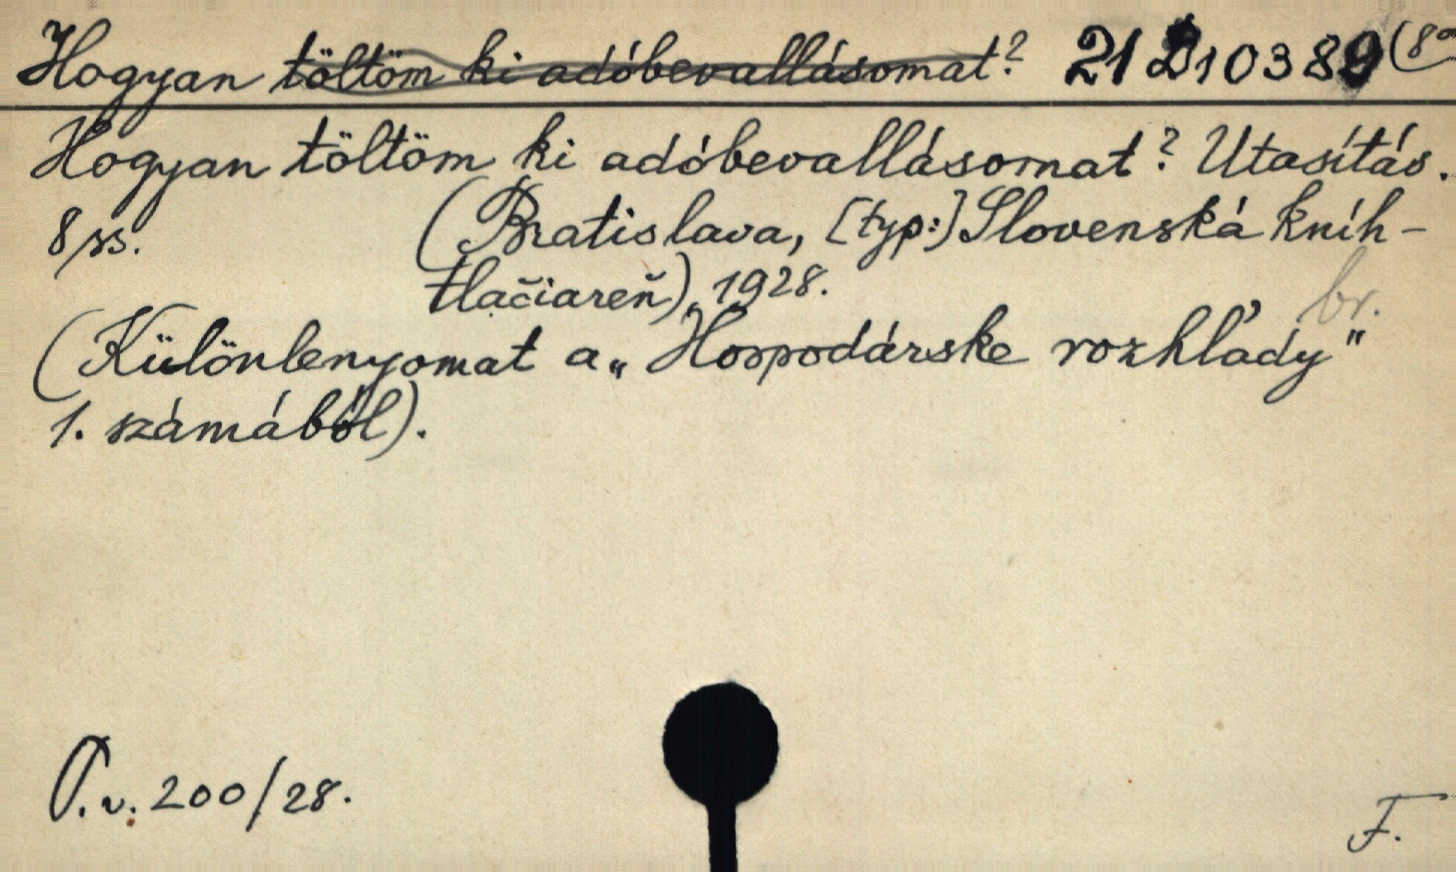 Hogyan töltöm ki adóbevallásomat? 21 D 10389 (8°
Hogyan töltöm ki adóbevallásomat? Utasítás.
8 ss. (Bratislava, [typ:] Slovenská kníh-
tlačiareň), 1928.
br.
(Különlenyomat a „Hospodárske rozhľady"
1. számából).
P.v. 200/28.
F.